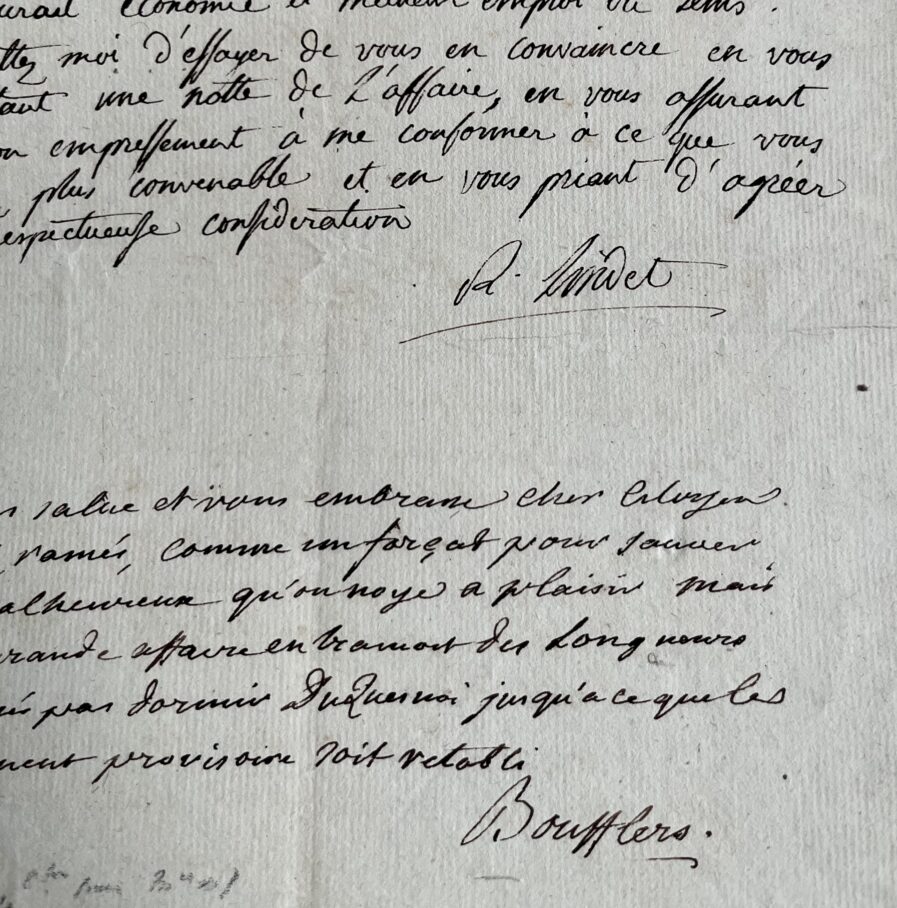 économie et meilleur emploi du tems.
ttez moi d'essayer de vous en convaincre en vous
tant une notte de l'affaire, en vous assurant
on empressement à me conformer à ce que vous
plus convenable et en vous priant d'agréer
respectueuse considération
R. Lindet
salue et vous embrasse cher Citoyen
ramés, comme un forçat pour sauver
alheureux qu'on noye a plaisir mais
grande affaire entramant des longueurs
pas dormir DuQuesnoi jusqu'a ce que les
ment provisoire soit retabli
Boufflers.